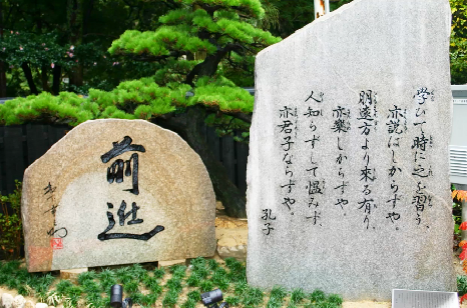 学びて時に之を習う、
亦説ばしからずや。
朋遠方より来る有り、
亦楽しからずや。
人知らずして慍みず、
亦君子ならずや。
孔子
前進